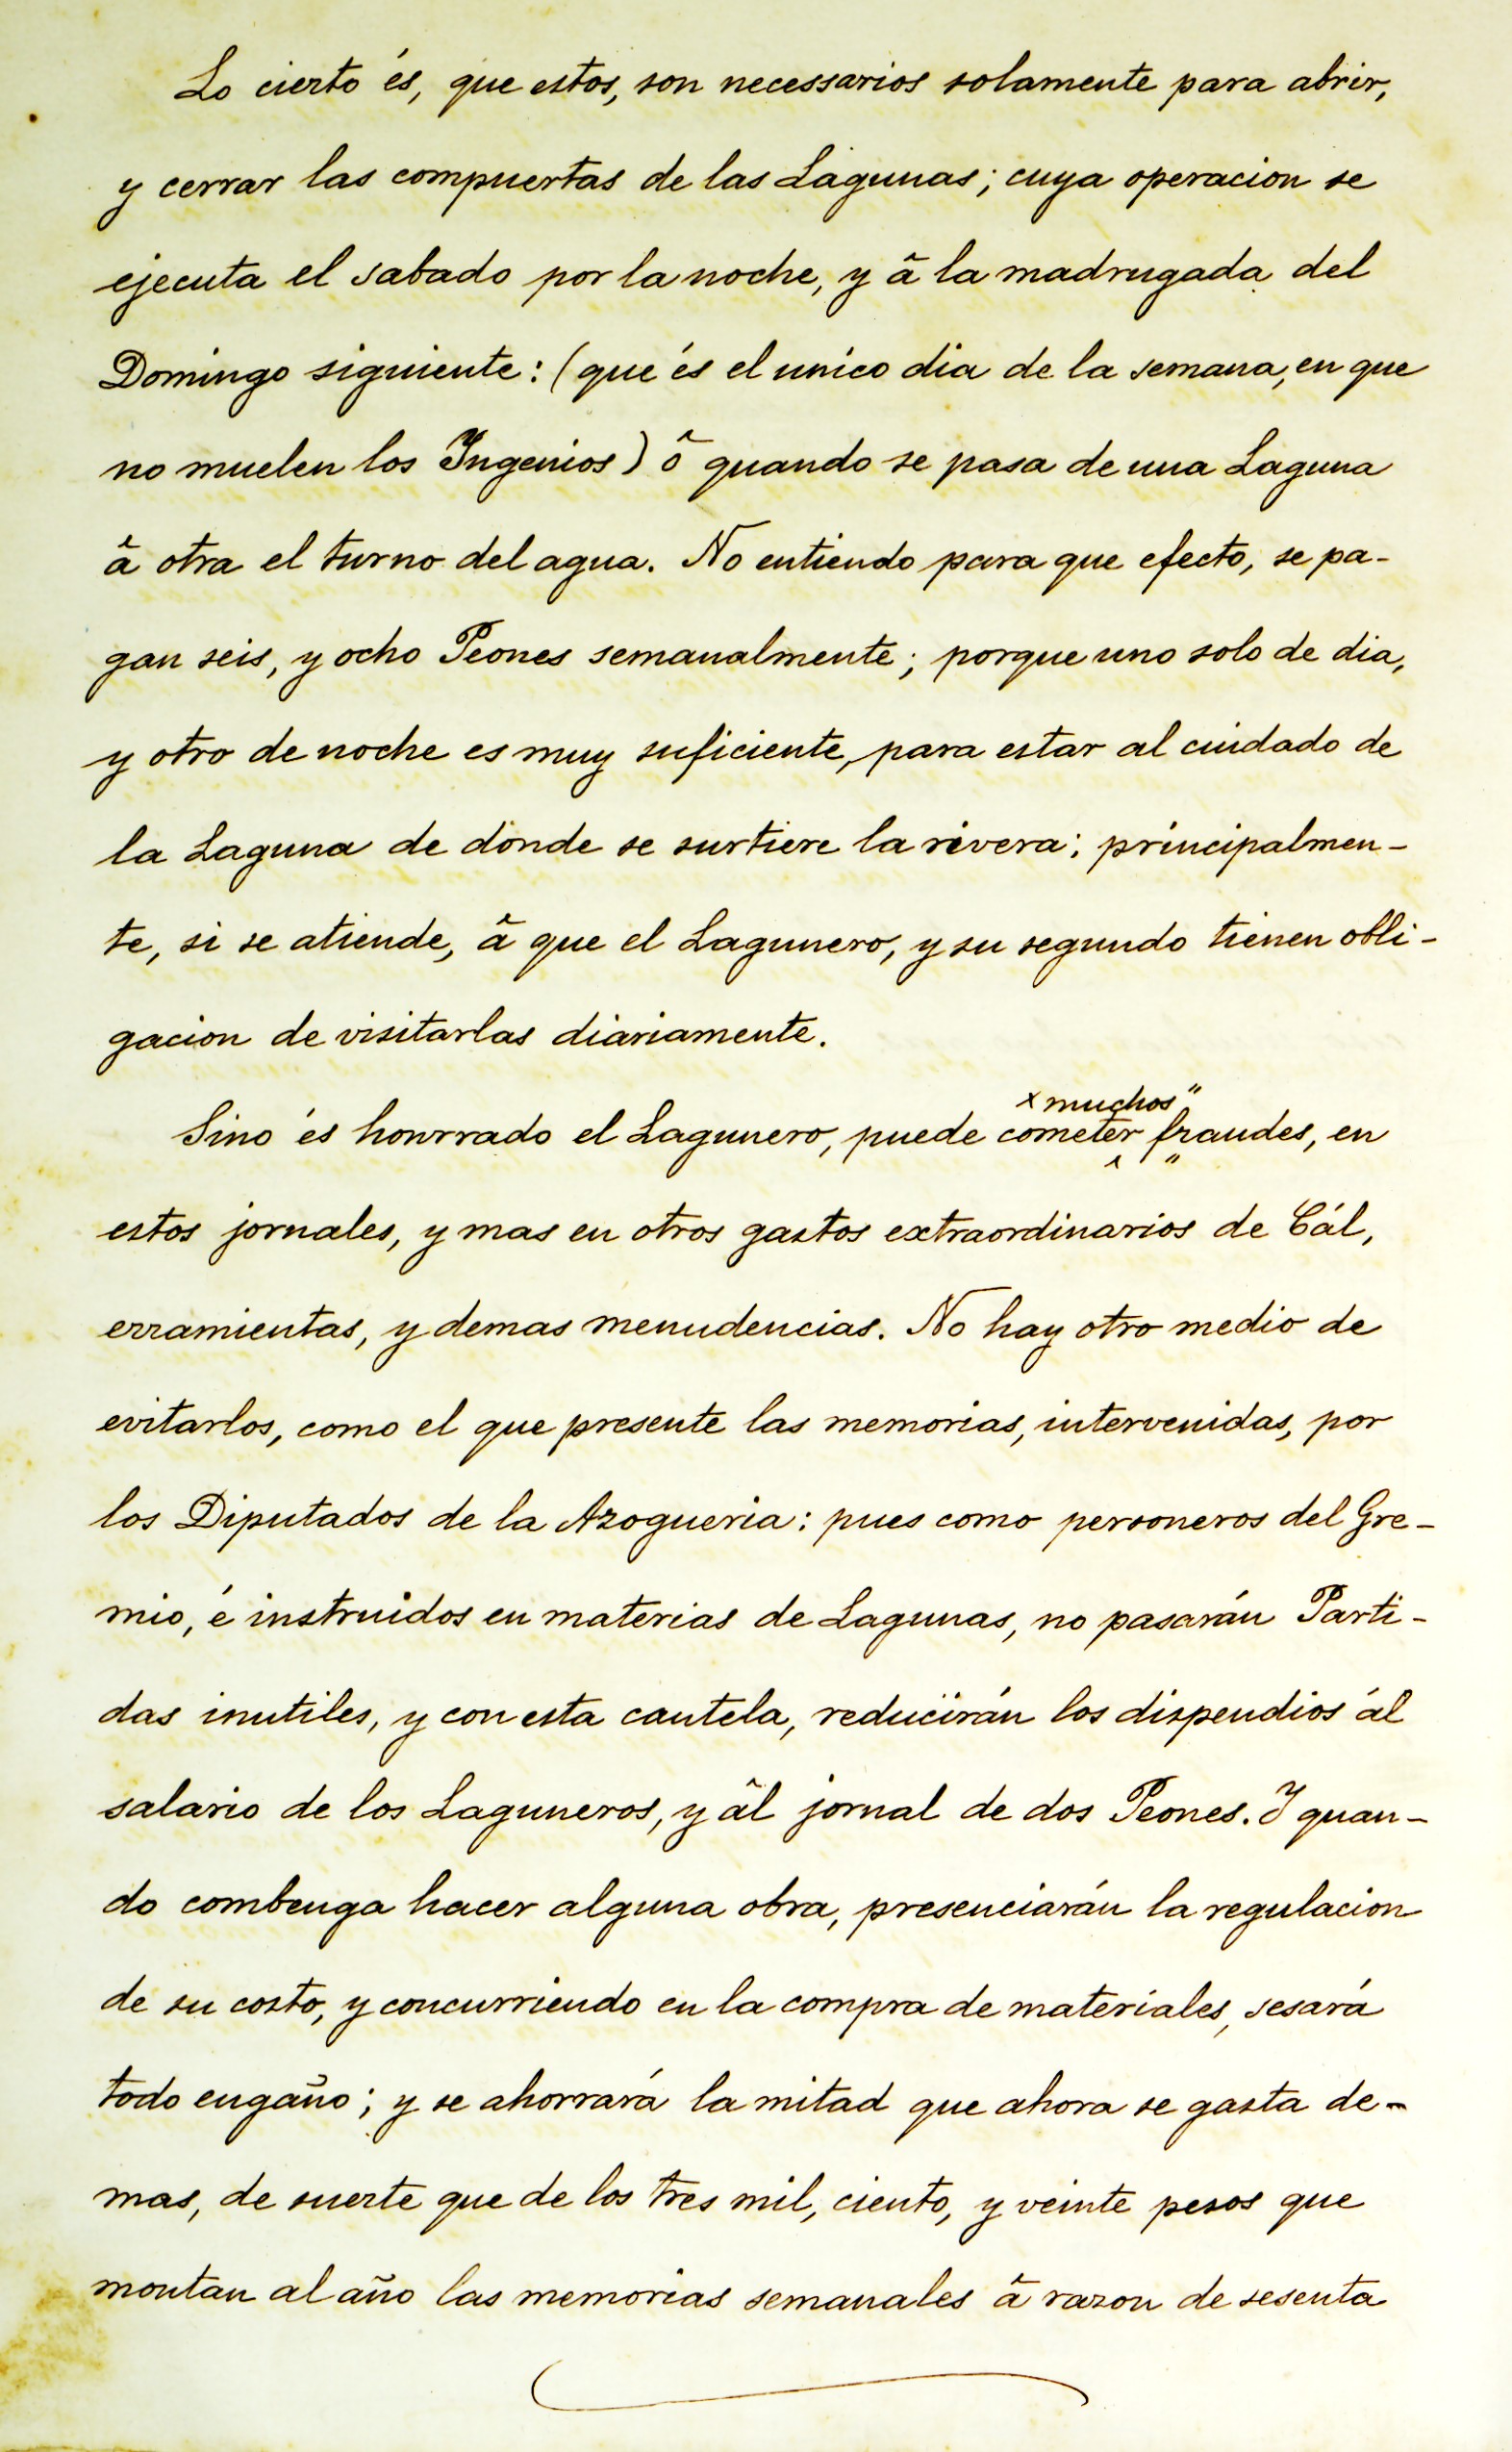 Lo cierto és, que estos, son necessarios solamente para abrir,
y cerrar las compuertas de las Lagunas; cuya operacion se
ejecuta el sabado por la noche, y â la madrugada del
Domingo siguiente: (que és el unico dia de la semana, en que
no muelen los Yngenios) ô quando se pasa de una Laguna
â otra el turno del agua. No entiendo para que efecto, se pa-
gan seis, y ocho Peones semanalmente; porque uno solo de dia,
y otro de noche es muy suficiente, para estar al cuidado de
la Laguna de donde se surtiere la rivera; principalmen-
te, si se atiende, â que el Lagunero, y su segundo tienen obli-
gacion de visitarlas diariamente.
x muchos "
Sino és honrrado el Lagunero, puede cometer fraudes, en
estos jornales, y mas en otros gastos extraordinarios de Cál,
erramientas, y demas menudencias. No hay otro medio de
evitarlos, como el que presente las memorias, intervenidas, por
los Diputados de la Azogueria: pues como personeros del Gre-
mio, é instruidos en materias de Lagunas, no pasarán Parti-
das inutiles, y con esta cautela, reducirán los dispendios ál
salario de los Laguneros, y âl jornal de dos Peones. Y quan-
do combenga hacer alguna obra, presenciarán la regulacion
de su costo, y concurriendo en la compra de materiales, sesará
todo engaño; y se ahorrará la mitad que ahora se gasta de-
mas, de suerte que de los tres mil, ciento, y veinte pesos que
montan al año las memorias semanales â razon de sesenta